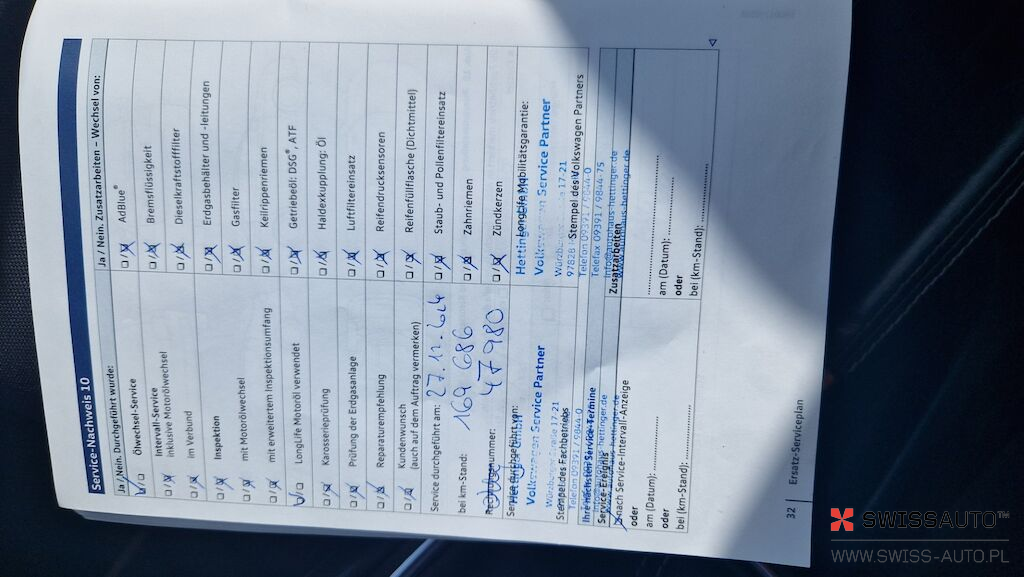 Service-Nachweis 10
Ja / Nein. Durchgeführt wurde:
Ölwechsel-Service
Intervall-Service
Inklusive Motorölwechsel
im Verbund
Inspektion
mit Motorölwechsel
mit erweitertem Inspektionsumfang
LongLife Motoröl verwendet
Karosserieprüfung
Prüfung der Erdgasanlage
Reparaturempfehlung
Kundenwunsch
(auch auf dem Auftrag vermerken)
Service durchgeführt am: 27.11.2024
bei km-Stand: 169 686
Rechnungsnummer: 47980
Service durchgeführt von:
Volkswagen Service Partner
Würzburger Straße 17-21
Stempel des Fachbetriebs
Telefon 09391 / 9844-0
Ihre nächsten Service-Termine
Service-Ereignis
nach Service-Intervall-Anzeige
oder
am (Datum):
oder
bei (km-Stand):
Ja / Nein. Zusatzarbeiten – Wechsel von:
AdBlue®
Bremsflüssigkeit
Dieselkraftstofffilter
Erdgasbehälter und -leitungen
Gasfilter
Keilrippenriemen
Getriebeöl: DSG®, ATF
Haldexkupplung: Öl
Luftfiltereinsatz
Reifendrucksensoren
Reifenfüllflasche (Dichtmittel)
Staub- und Pollenfiltereinsatz
Zahnriemen
Zündkerzen
LongLife Mobilitätsgarantie:
Volkswagen Service Partner
Würzburger Straße 17-21
97828
Stempel des Volkswagen Partners
Telefon 09391 / 9844-0
Telefax 09391 / 9844-75
info@autohaus-hettinger.de
Zusatzarbeiten
www.autohaus-hettinger.de
am (Datum):
oder
bei (km-Stand):
32 Ersatz-Serviceplan
SWISSAUTO™
WWW.SWISS-AUTO.PL